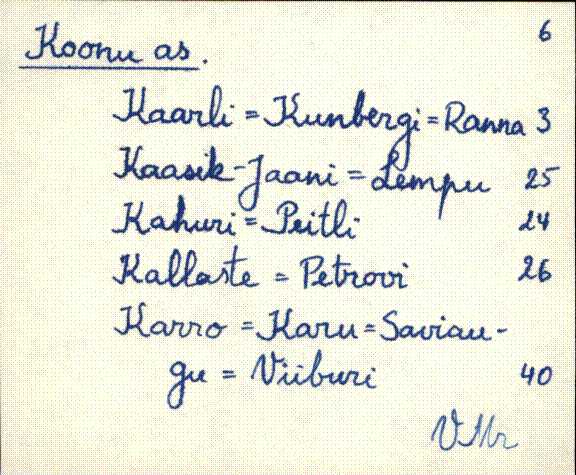 6
Koonu as.
Kaarli = Kunbergi = Ranna 3
Kaasik-Jaani = Lempu 25
Kahuri = Peitli 24
Kallaste = Petrovi 26
Karro = Karu = Saviau-
gu = Viiburi 40